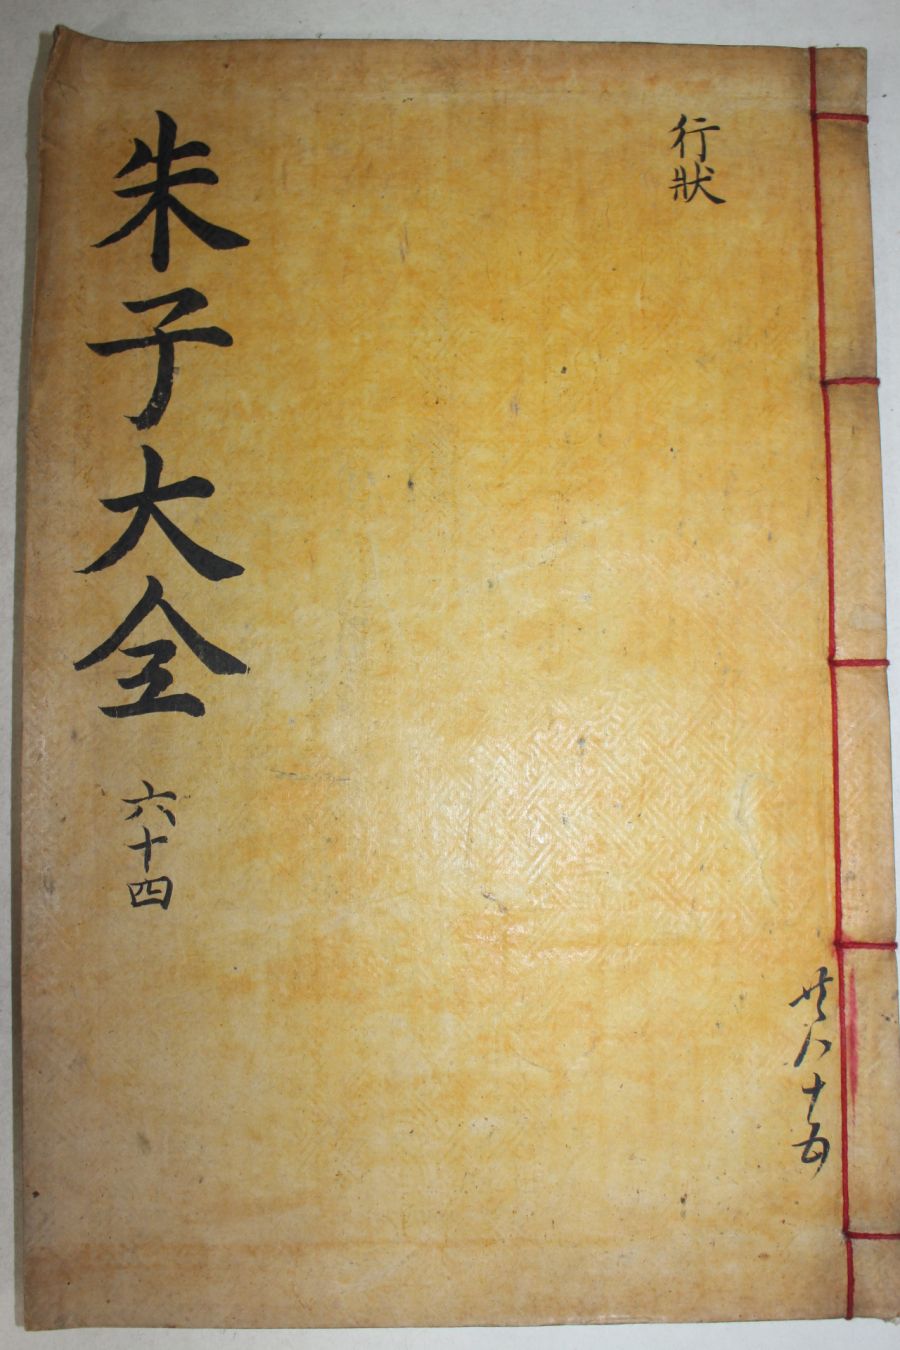 行狀
共八十五
朱子大全
六十四